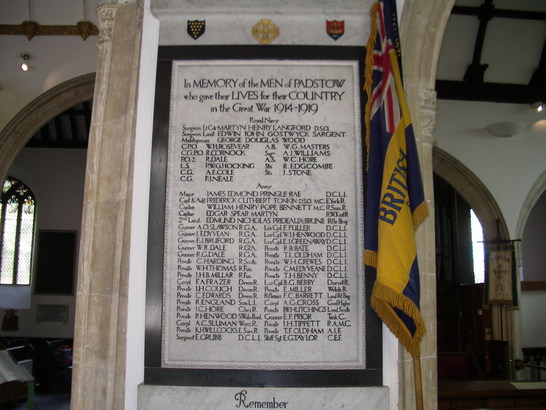 In MEMORY of the MEN of PADSTOW
who gave their LIVES for their COUNTRY
in the Great War 1914-1919
Royal Navy
Surgeon Lt Cdr MARTYN HENRY LANGFORD D.S.O.
Surgeon Lieut EDWIN JOHN GOSTWYCK SARGENT
Midshipman GEORGE DOUGLAS WOOD
C.P.O. W.H. ROSEVEAR A.B. W.G. MASTERS
C.G.P.O. R. CORNOCK A.J. WILLIAMS
P.O.2. R. DALE A.S. W.C. HORE
L.S. P.W.G. HOCKING R. EDGCOMBE
C.G. A.E. COLE S. J. STONE
C.G. F.J. NEALE
Army
Major JAMES EDMOND PRINGLE-RAE D.C.L.I.
Capt & Adj FREDERICK CUTHBERT TONKIN D.S.O. M.C.
Captain WILLIAM HENRY POPE BENNETT M.C.
Captain EDGAR SPEAR MARTYN
2nd Lieut EDMUND NICHOLAS PRIDEAUX-BRUNE Rifle Brig
Gunner A.O.S. LAWSON R.G.A. E. FULLER D.C.L.I.
Gunner J. EDYVEAN R.G.A. W.J. HENWOOD D.C.L.I.
Gunner E.J. BRUFORD R.G.A. E.J. GREENAWAY D.C.L.I.
Gunner W.R. DALE R.G.A. Private R. BATE D.C.L.I.
Gunner R.G. DALE R.G.A. Private T.L. OLDHAM D.C.L.I.
Private C. HARDING Private W.H. CREWES D.C.L.I.
Private W.H. THOMAS Private C. MEDYVEANE D.C.L.I.
Private J.H.B. MILLAR Private T.H. BENNY D.C.L.I.
Corpl F.A. FRAZER B.G. BERRY
Private J.H. COUCH Private E. MILLER
Private C. EDWARDS F.C. BARRETT
Private R. ENGLAND Corpl A.G. CROSS
Private J. CHORE Private B.V. HUTCHINGS
Private P. HENWOOD Gunner E.P. PRIOR Tank C.
Corpl A.C. SLUMAN Private J.H. TIPPETT R.A.M.C.
Private K.H. WILLCOCKS Private T.F. OLDHAM A.I.F.
Sergeant E. GRUBB D.C.L.I. Staff Sgt E.G. TAYLOR C.E.F.
Remember
BRITISH